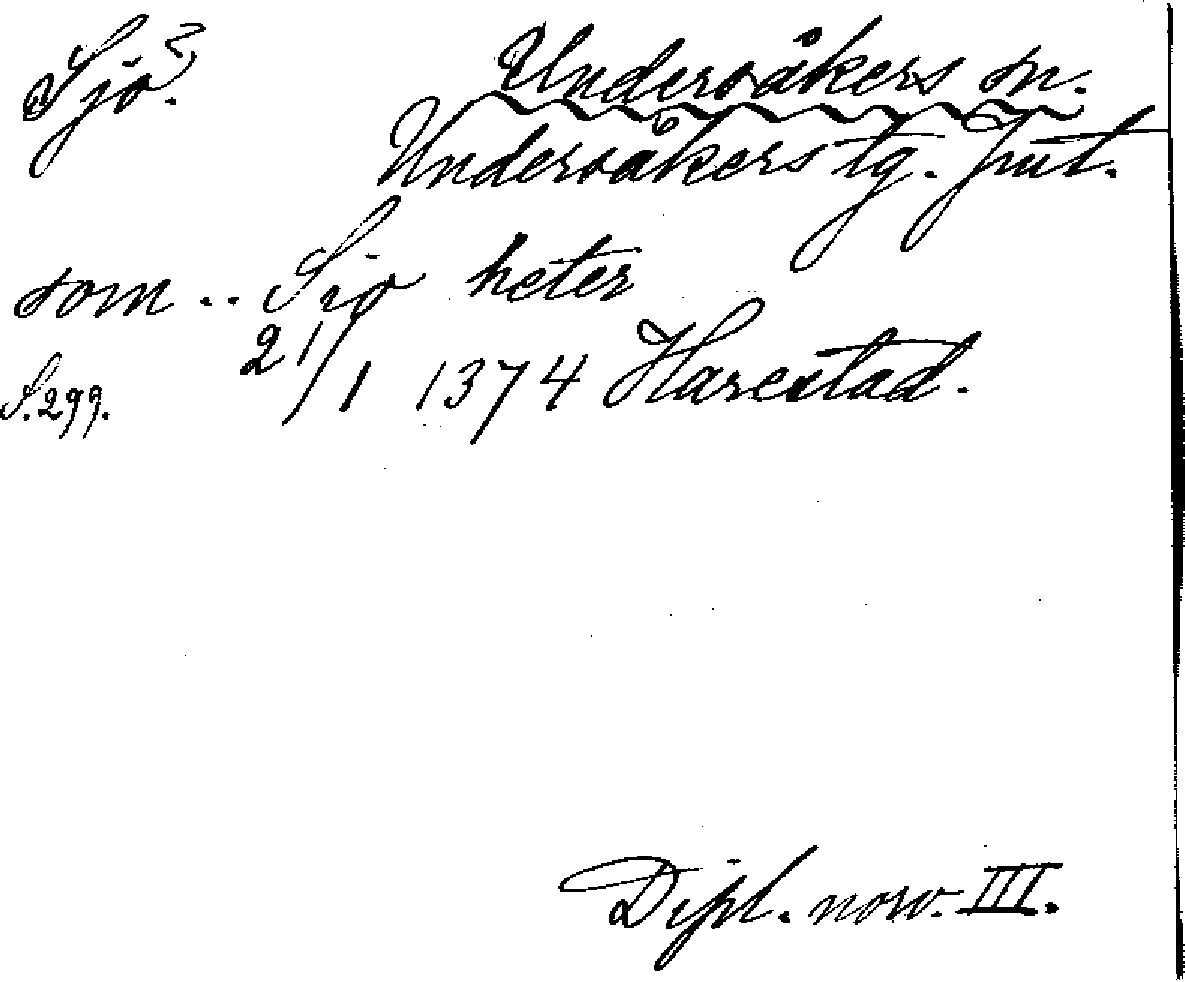 Sjö? Undersåkers sn.
Undersåkers tg. Jmt.
som .. Sio heter
21/1 1374 Harestad.
S. 299.
Dipl. norv. III.